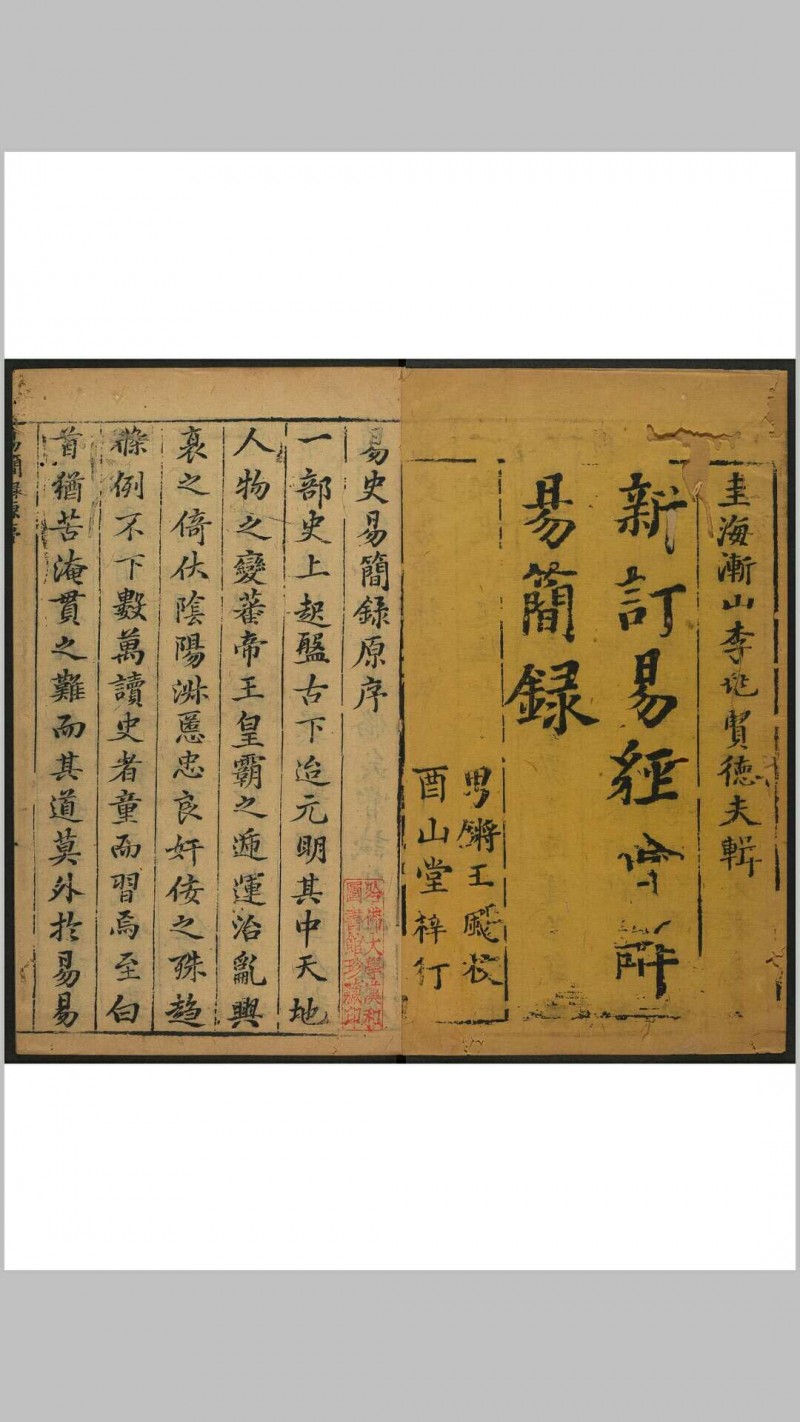 圭海漸山李兆賢德夫輯
新訂易經
易簡録
男鏘王颺校
酉山堂梓行
易史易簡録原序
一部史上起盤古下迨元明其中天地
人物之變蕃帝王皇霸之遞運治亂興
衰之倚伏陰陽淑慝忠良奸佞之殊趋
條例不下數萬讀史者童而習焉至白
首猶苦淹貫之難而其道莫外於易易
哈佛大學漢和
圖書館珍藏印